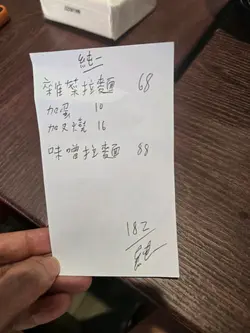 純一
雜菜拉麵 68
加蛋 10
加叉燒 16
味噌拉麵 88
182
純